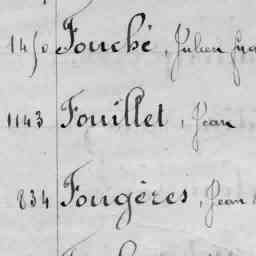 1450 Fouché, Julien
1143 Fouillet, Jean
834 Fougères, Jean